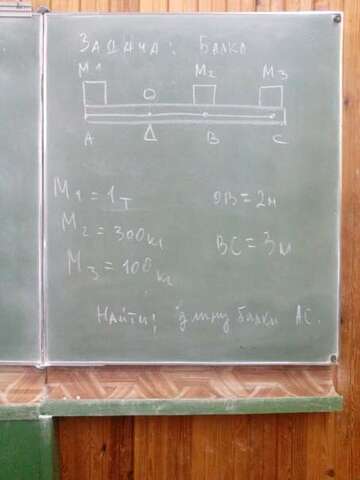 Задача: Балка
M1 M2 M3
O
A B C
M1 = 1т
OB = 2м
M2 = 300кг
BC = 3м
M3 = 100кг
Найти: длину балки AC.